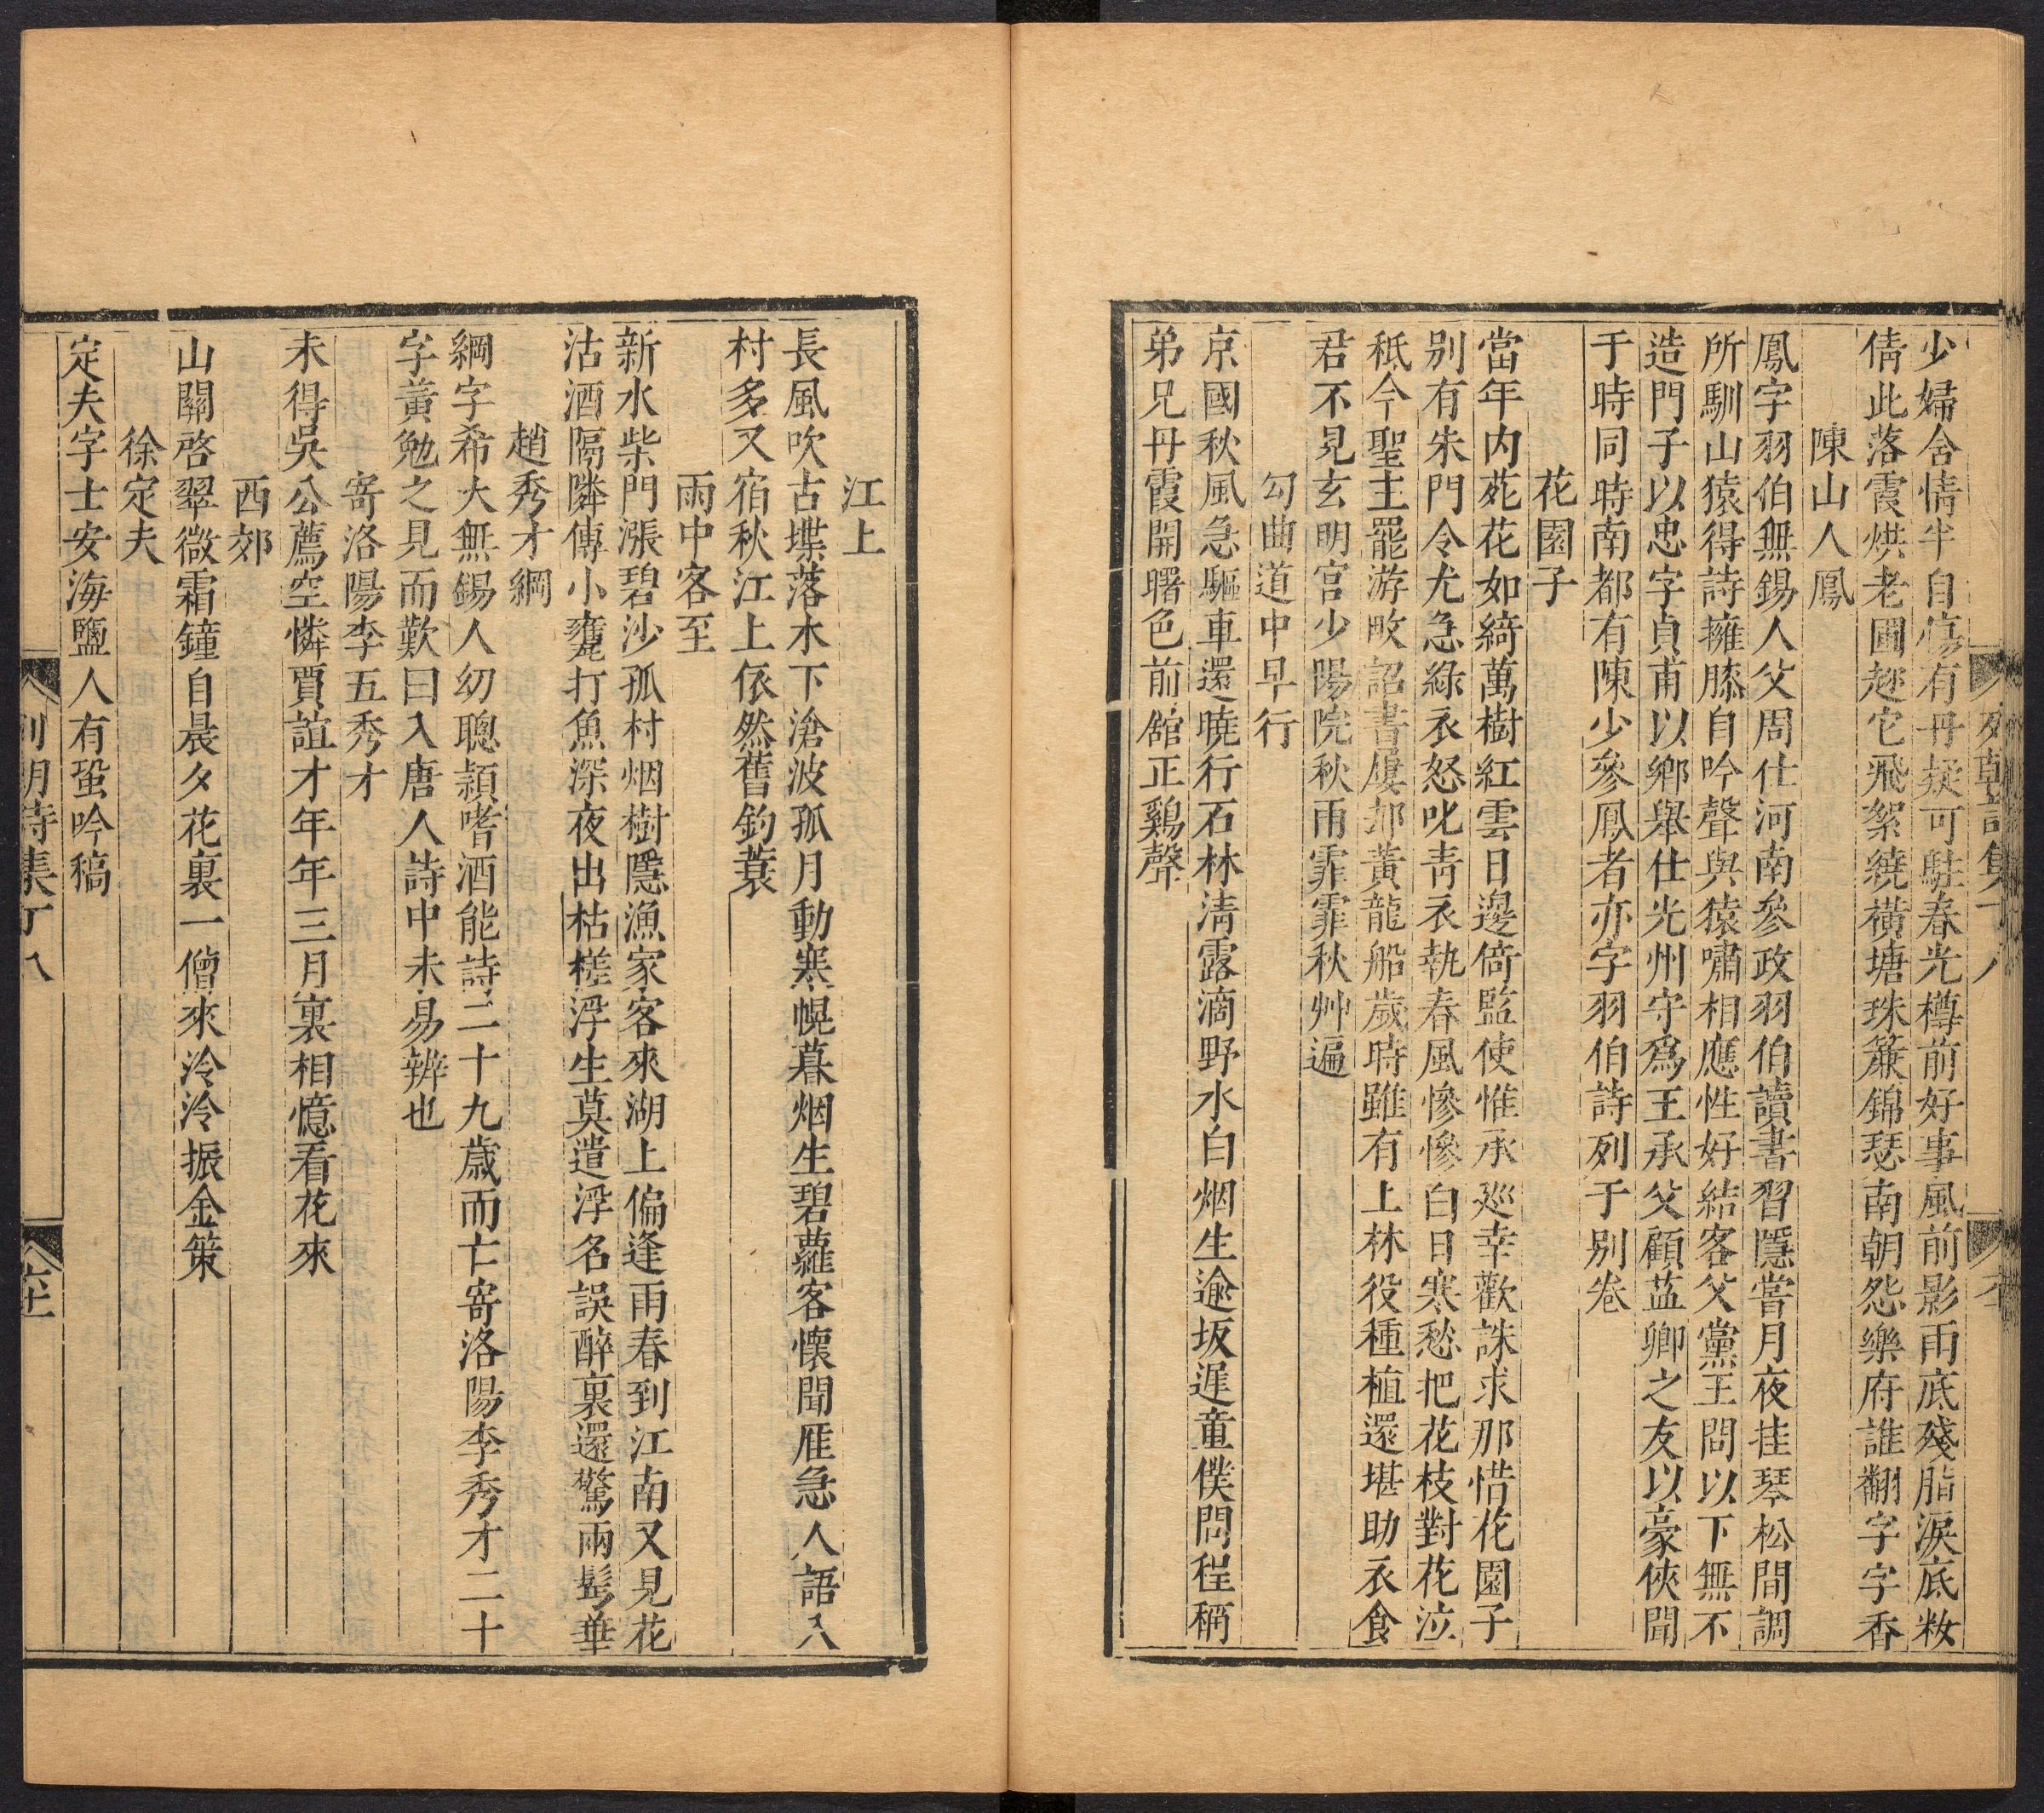 列朝詩集丁八
少婦含情半自傷有丹疑可駐春光樽前好事風前影雨底殘脂淚底粧
倩此落霞烘老圃趂它飛絮繞橫塘珠簾錦瑟南朝怨樂府誰翻字字香
陳山人鳳
鳳字羽伯無錫人父周仕河南參政羽伯讀書習隱嘗月夜挂琴松間調
所馴山猿得詩擁膝自吟聲與猿嘯相應性好結客父黨王問以下無不
造門子以忠字貞甫以鄉舉仕光州守爲王承父顧益卿之友以豪俠聞
于時同時南都有陳少參鳳者亦字羽伯詩列于別卷
花園子
當年内苑花如綺萬樹紅雲日邊倚監使惟承廵幸歡誅求那惜花園子
別有朱門令尤急綠衣怒叱靑衣執春風慘慘白日寒愁把花枝對花泣
秪今聖主罷游畋詔書屢却黃龍船歲時雖有上林役種植還堪助衣食
君不見玄明宫少陽院秋雨霏霏秋艸遍
勾曲道中早行
京國秋風急驅車還曉行石林淸露滴野水白烟生逾坂遲童僕問程稱
弟兄丹霞開曙色前舘正鷄聲
江上
長風吹古堞落木下滄波孤月動寒幌暮烟生碧蘿客懷聞雁急人語入
村多又宿秋江上依然舊釣蓑
雨中客至
新水柴門漲碧沙孤村烟樹隱漁家客來湖上偏逢雨春到江南又見花
沽酒隔隣傳小甕打魚深夜出枯槎浮生莫遣浮名誤醉裏還驚兩髩華
趙秀才綱
綱字希大無錫人幼聰頴嗜酒能詩二十九歲而亡寄洛陽李秀才二十
字黃勉之見而歎曰入唐人詩中未易辨也
寄洛陽李五秀才
未得吳公薦空憐賈誼才年年三月裏相憶看花來
西郊
山關啓翠微霜鐘自晨夕花裏一僧來泠泠振金策
徐定夫
定夫字士安海鹽人有蛩吟稿
列朝詩集丁八